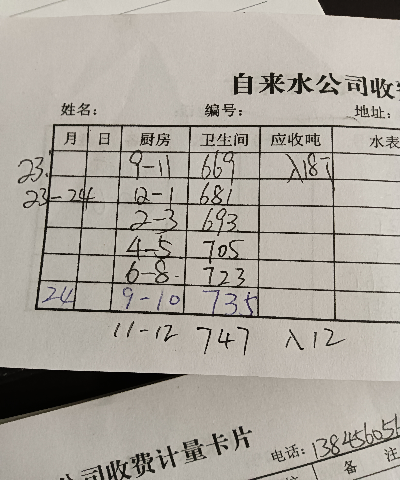 自来水公司收
姓名： 编号： 地址：
月 日 厨房 卫生间 应收吨 水表
23. 9-11 669 入18T
23-24 12-1 681
2-3 693
4-5 705
6-8 723
24 9-10 735
11-12 747 入12
公司收费计量卡片
电话：138456056
备 注